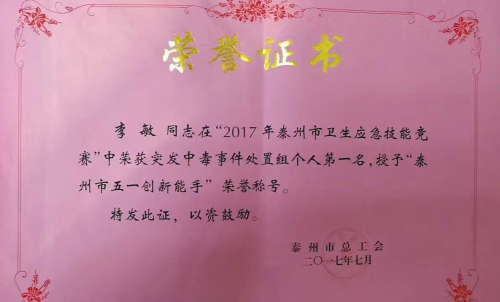 荣誉证书
李敏同志在“2017年泰州市卫生应急技能竞
赛”中荣获突发中毒事件处置组个人第一名,授予“泰
州市五一创新能手”荣誉称号。
特发此证,以资鼓励。
泰州市总工会
二〇一七年七月